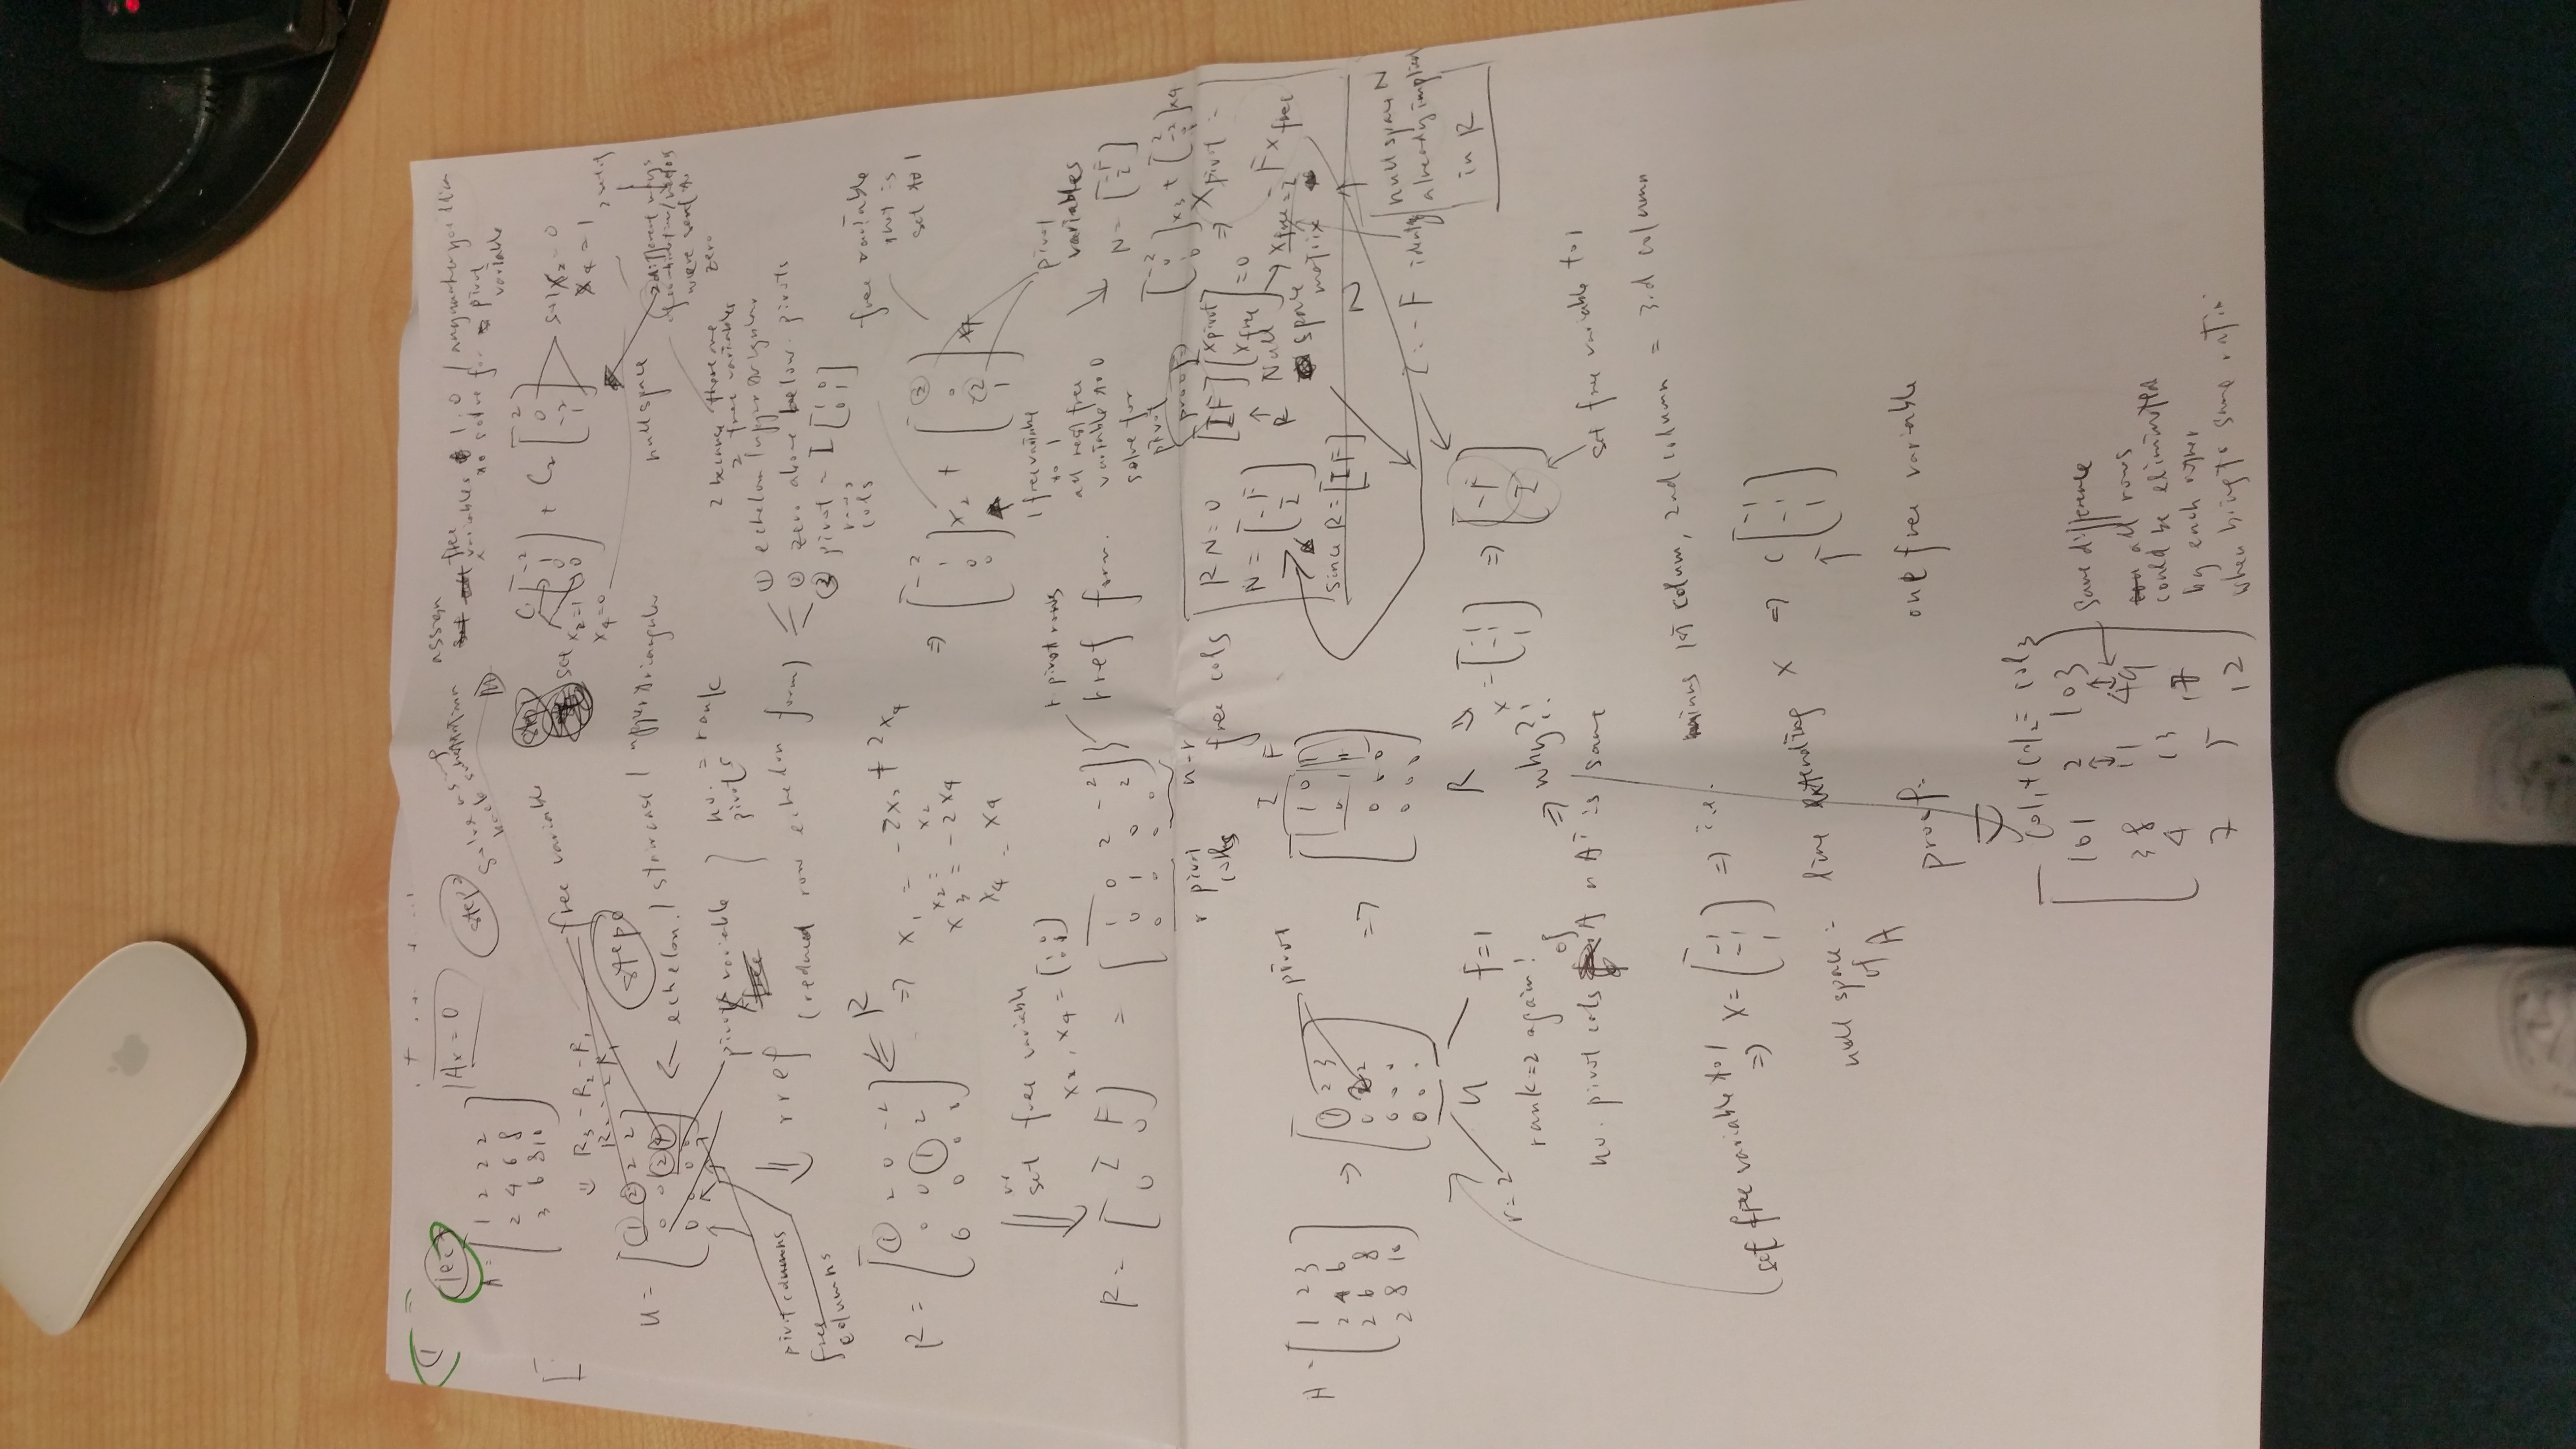 lec 7
Ax = 0
A = [ 1 2 2 2
2 4 6 8
3 6 8 10 ]
R3 - R2 - R1
R2 - 2R1
step 2
solve using back substitution
assign free variables 1, 0 /
to solve for pivot variable
set x2 = 1
x4 = 0
C1 [ -2 1 0 0 ] + C2 [ 2 0 -2 1 ]
set x2 = 0
x4 = 1
null space
2 different ways
were send to zero
2 because there are 2 free variables
free variable
step
U = [ 1 2 2 2
0 0 2 4
0 0 0 0 ]
← echelon / staircase / upper triangular
pivot variable
no. pivots = rank
pivot columns
free columns
⇓ rref (reduced row echelon form)
① echelon / upper triangular
② zero above below pivots
③ pivot rows cols = I [ 1 0 0 1 ]
R = [ 1 2 0 -2
0 0 1 2
0 0 0 0 ]
⇐ R
⇒ x1 = -2x2 + 2x4
x2 = x2
x3 = -2x4
x4 = x4
⇒ [ -2 1 0 0 ] x2 + [ 2 0 -2 1 ] x4
free variable that is set to 1
1 free variable to 1
all rest free variable to 0
solve for pivot
pivot variables
N = [ -F I ]
set free variable
x2, x4 =
R = [ I F
0 0 ]
= [ 1 0 2 -2
0 1 0 2
0 0 0 0 ]
r pivot rows
rref form.
r pivot cols
n-r free cols
proof
RN = 0
N = [ -F I ]
since R = [I F]
[I F] [ xpivot xfree ] = 0
R
Null space matrix
N
⇒ xpivot = -F xfree
null space N already implied in R
A = [ 1 2 3
2 4 6
2 6 8
2 8 10 ]
⇒ [ 1 2 3
0 2 2
0 0 0
0 0 0 ]
pivot
U
r = 2
f = 1
⇒
I F
[ 1 0 1
0 1 1
0 0 0
0 0 0 ]
R
x = [ -1 -1 1 ] ⇒ [ -F I ]
set free variable to 1
rank = 2 again!
⇒ why?!
no. pivot cols of A n Aᵀ is same
set free variable to 1
⇒ x = [ -1 -1 1 ] ⇒ i.e. minus 1st colum, 2nd column = 3rd column
null space of A = line extending x ⇒ C [ -1 -1 1 ]
one free variable
proof:
col1 + col2 = col3
[ 101 2 103
38 11 49
4 13 17
7 5 12 ]
same difference
all rows
could be eliminated
by each other
when bring to same ratio